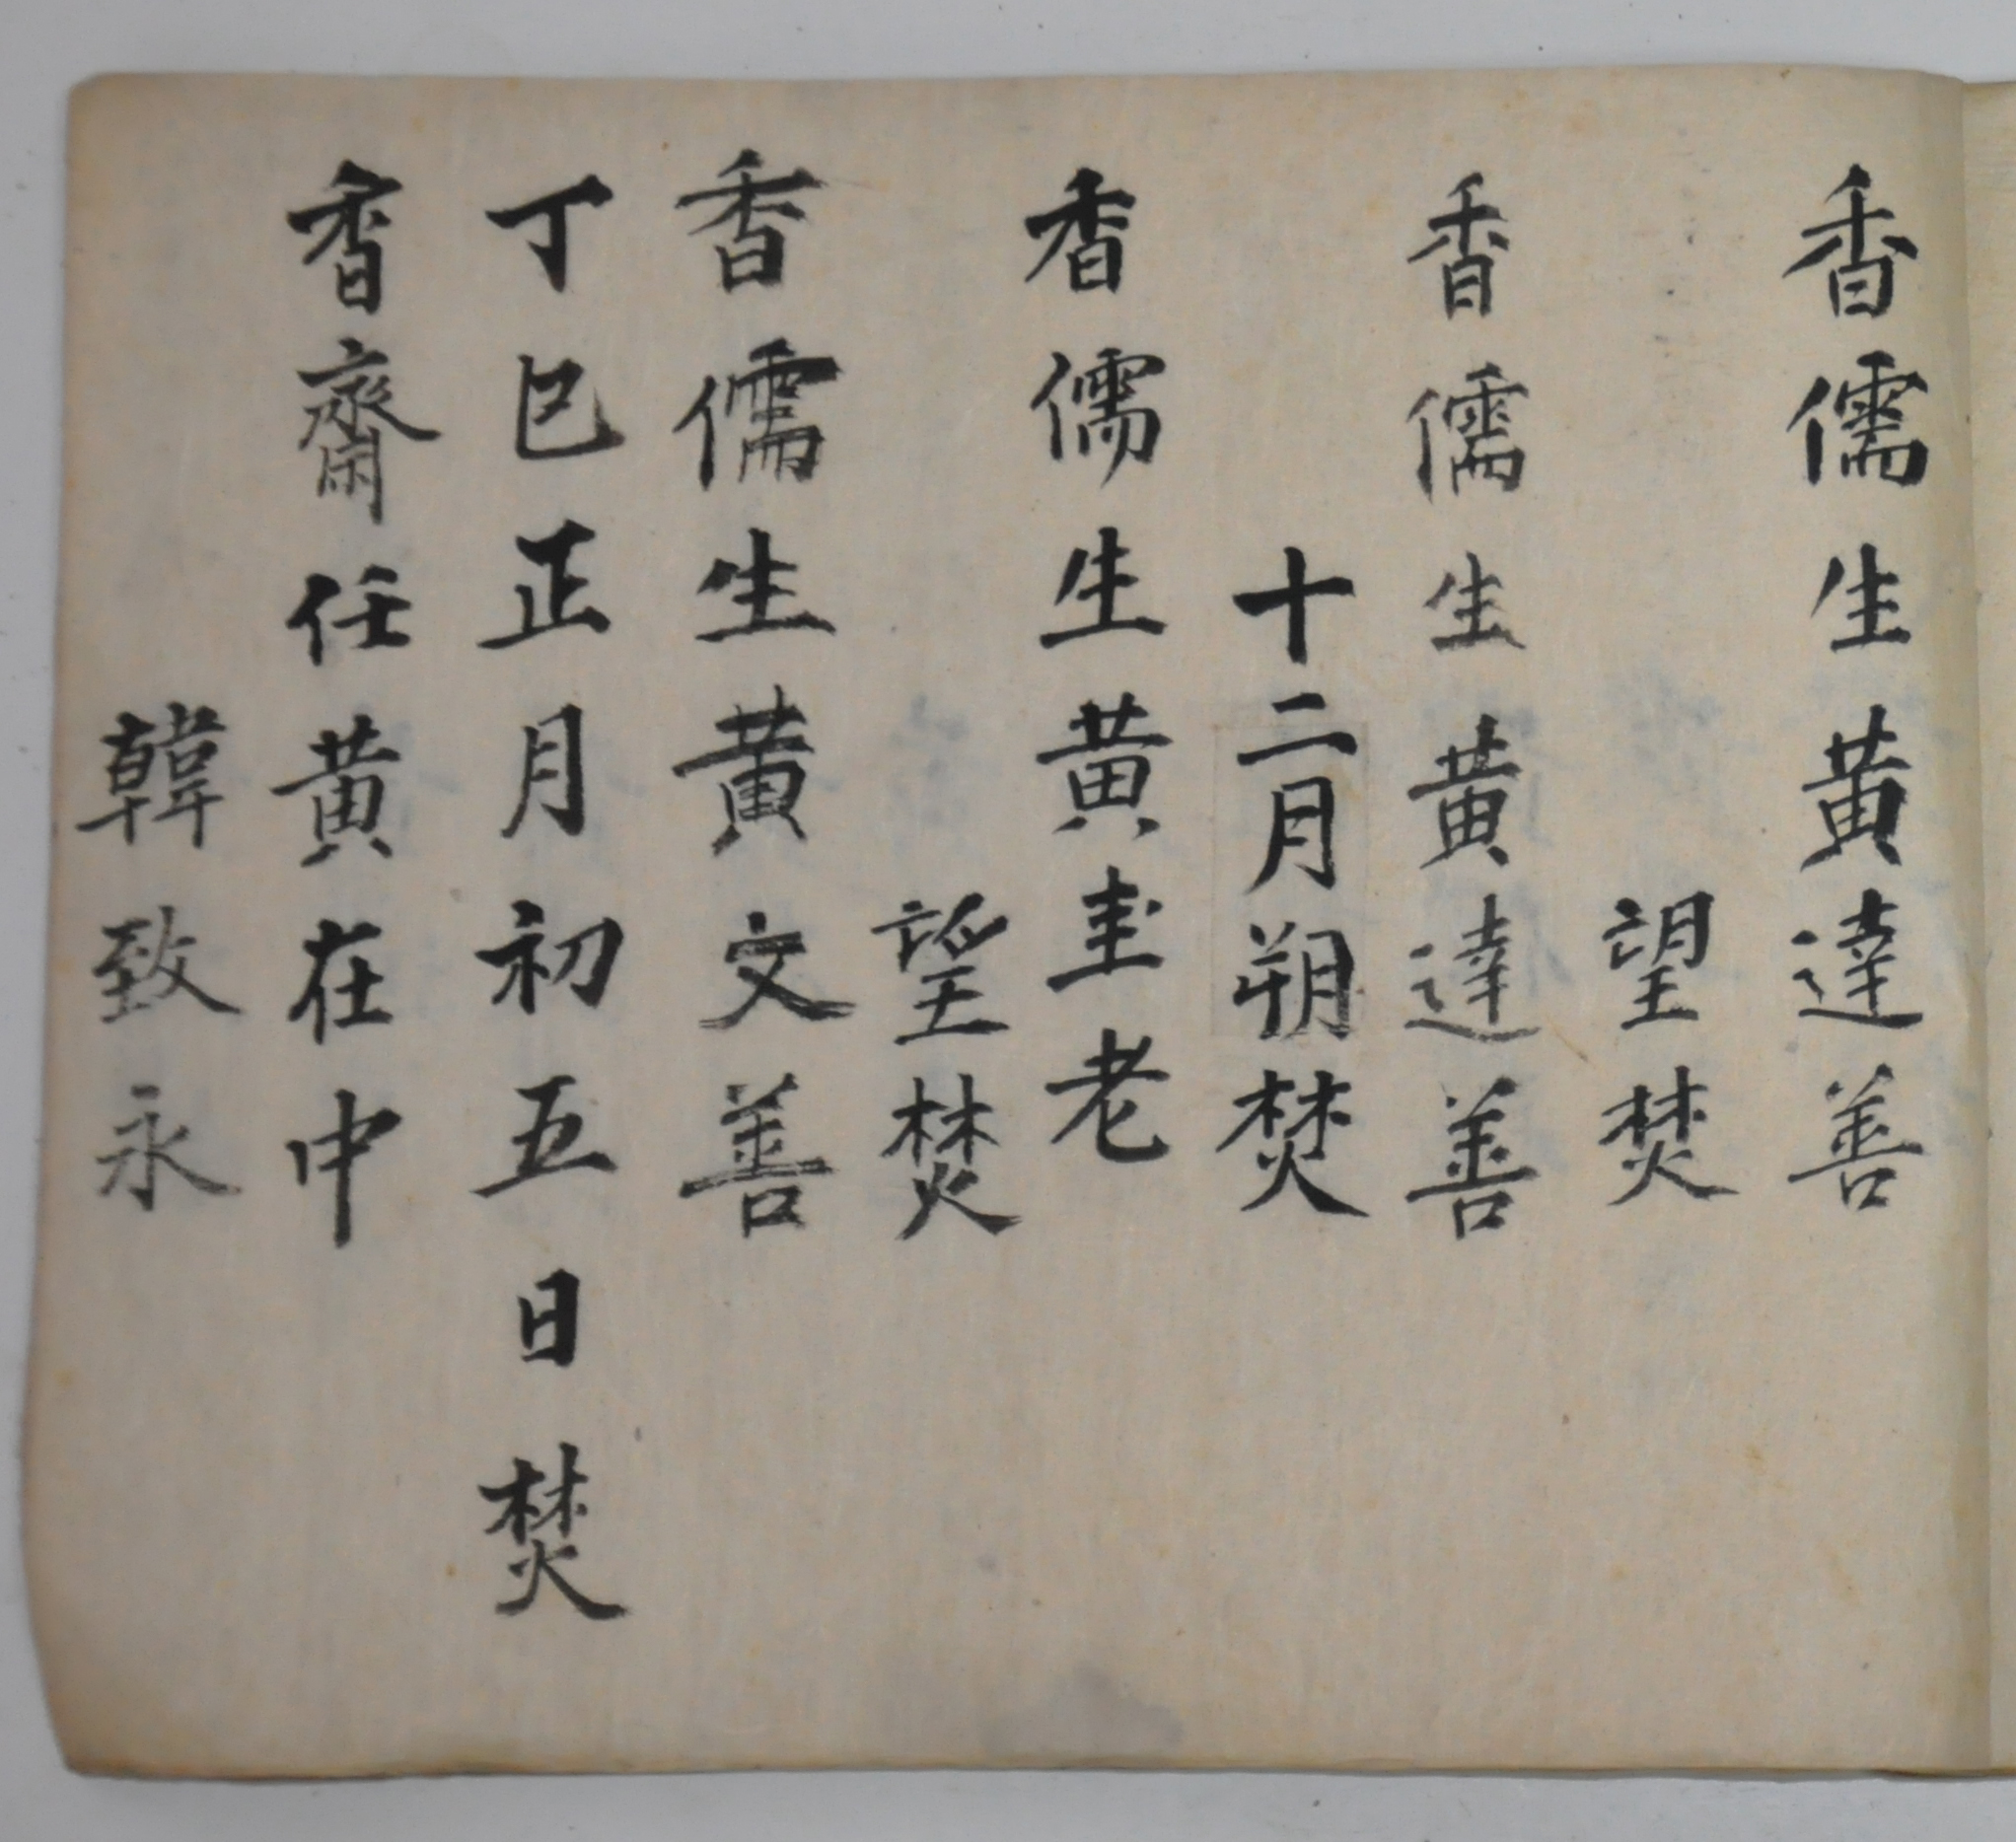 香儒生黃達善
望焚
香儒生黃達善
十二月朔焚
香儒生黃圭老
望焚
香儒生黃文善
丁巳正月初五日焚
香齋任黃在中
韓致永